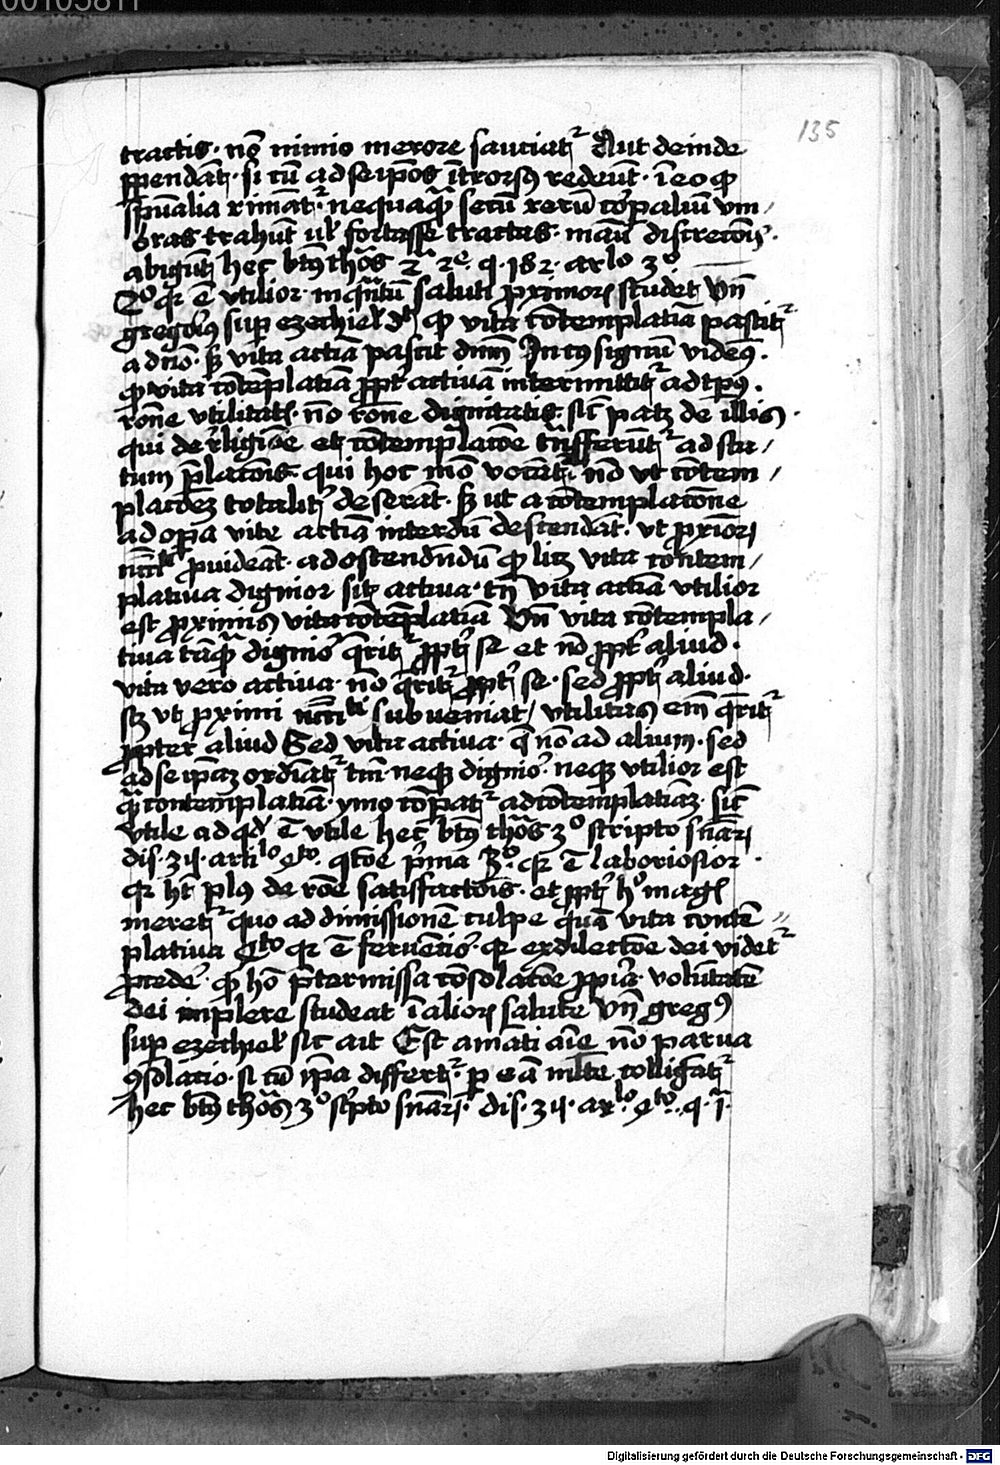 00105811
135
tractis · nō nimio merore sauciat᷑ Aut deinde
ꝑpendāt · si cū ad se ip̄os īt̄rorsꝰ redeūt · ī eo ꝙ
sp̄ualia rimāt᷑ · nequaqͣ secū rerū cōꝑaliū vm /
bras trahūt ul̛ fortasse tractas · manū discrecōis ·
abigūt hec bt̄ꝰ thoͣs 2ͣ 2ᵉ · q · 182 · arlo 3o
Qͦ qr ē vtilior · inqn̄tū saluti ꝓximoꝝ studet Vn̄
gregoꝰ suꝑ ezechiel dt ꝙ vita cōtemplatiā
a dno · sꝫ vita actiā Jn cꝰ signū videꝰ ·
ꝙ vita cōtēplatiā ꝓpt̛ actiuā intermittit᷑ ad tp̄ꝰ ·
rōne vtilitatꝭ nō rōne dignitatis · sic̄ patꝫ de illis ·
qui de religiōe et cōtemplacōe tn̄sferūt᷑ ad sta /
tum p̄lacōis · qui hoc mō vocāt᷑ nō vt cōtem /
placōeꝫ totalit̛ deserāt · sꝫ ut a cōtemplacōne
ad oꝑa vite actiue interdū descendāt · vt ꝓxioꝝ
ꝓuideāt · ad ostendēdū ꝙ licꝫ vita contem /
platiua dignior sit actiua · tn̄ vita actiā vtilior
est ꝓximis vita cōtēplatiā Vn̄ vita cōtempla /
tiua tāqͣ digniơ q̄rit᷑ ꝓpt̛ se et nō ꝓpt̛ aliud ·
vita vero actiua · nō q̄rit᷑ ꝓpt̛ se · sed ꝓpt̛ aliud ·
scꝫ vt ꝓximi subueniat / vtilitas em̄ q̄rit᷑
ꝓpter aliud Sed vita actiua · q̄ nō ad alium · sed
ad se ip̄aꝫ ordīat᷑ tm̄ · neqꝫ digniơ · neqꝫ vtilior est
qͣ contemplatiā · ymo cōꝑat᷑ ad cōtemplatiaꝫ · sic̄
vtile ad qd̛ ē vtile hec bt̄ꝰ thoͣs 3o scripto sn̄iaꝝ
dis · 35 · articlo qto · qcōe p̄ma 3o · qr ē laboriosior ·
qr hꝫ plꝰ de rōe satisfactōis · et ꝓpt̛ ho magꝭ
meret᷑ quo ad dimissionē culpe quā vita contē
platiua Qto qr ē feruētiơ · qr ex dilectōe dei videt᷑
ꝓcede̛ · ꝙ hō p̄termissa cōsolacōe ꝓpia · volūtatē
dei implere studeat ī alioꝝ salute Vn̄ gregꝰ
suꝑ ezechiel sic ait Est amāti aīe nō parua
ꝯsolatio · si cū ip̄a differt᷑ · ꝑ eā multe colligāt᷑
hec bt̄ꝰ thoͣs 3o sc̛pto sn̄iaꝝ · dis · 35 · arlo qto · q · ī ·
Digitalisierung gefördert durch die Deutsche Forschungsgemeinschaft - DFG